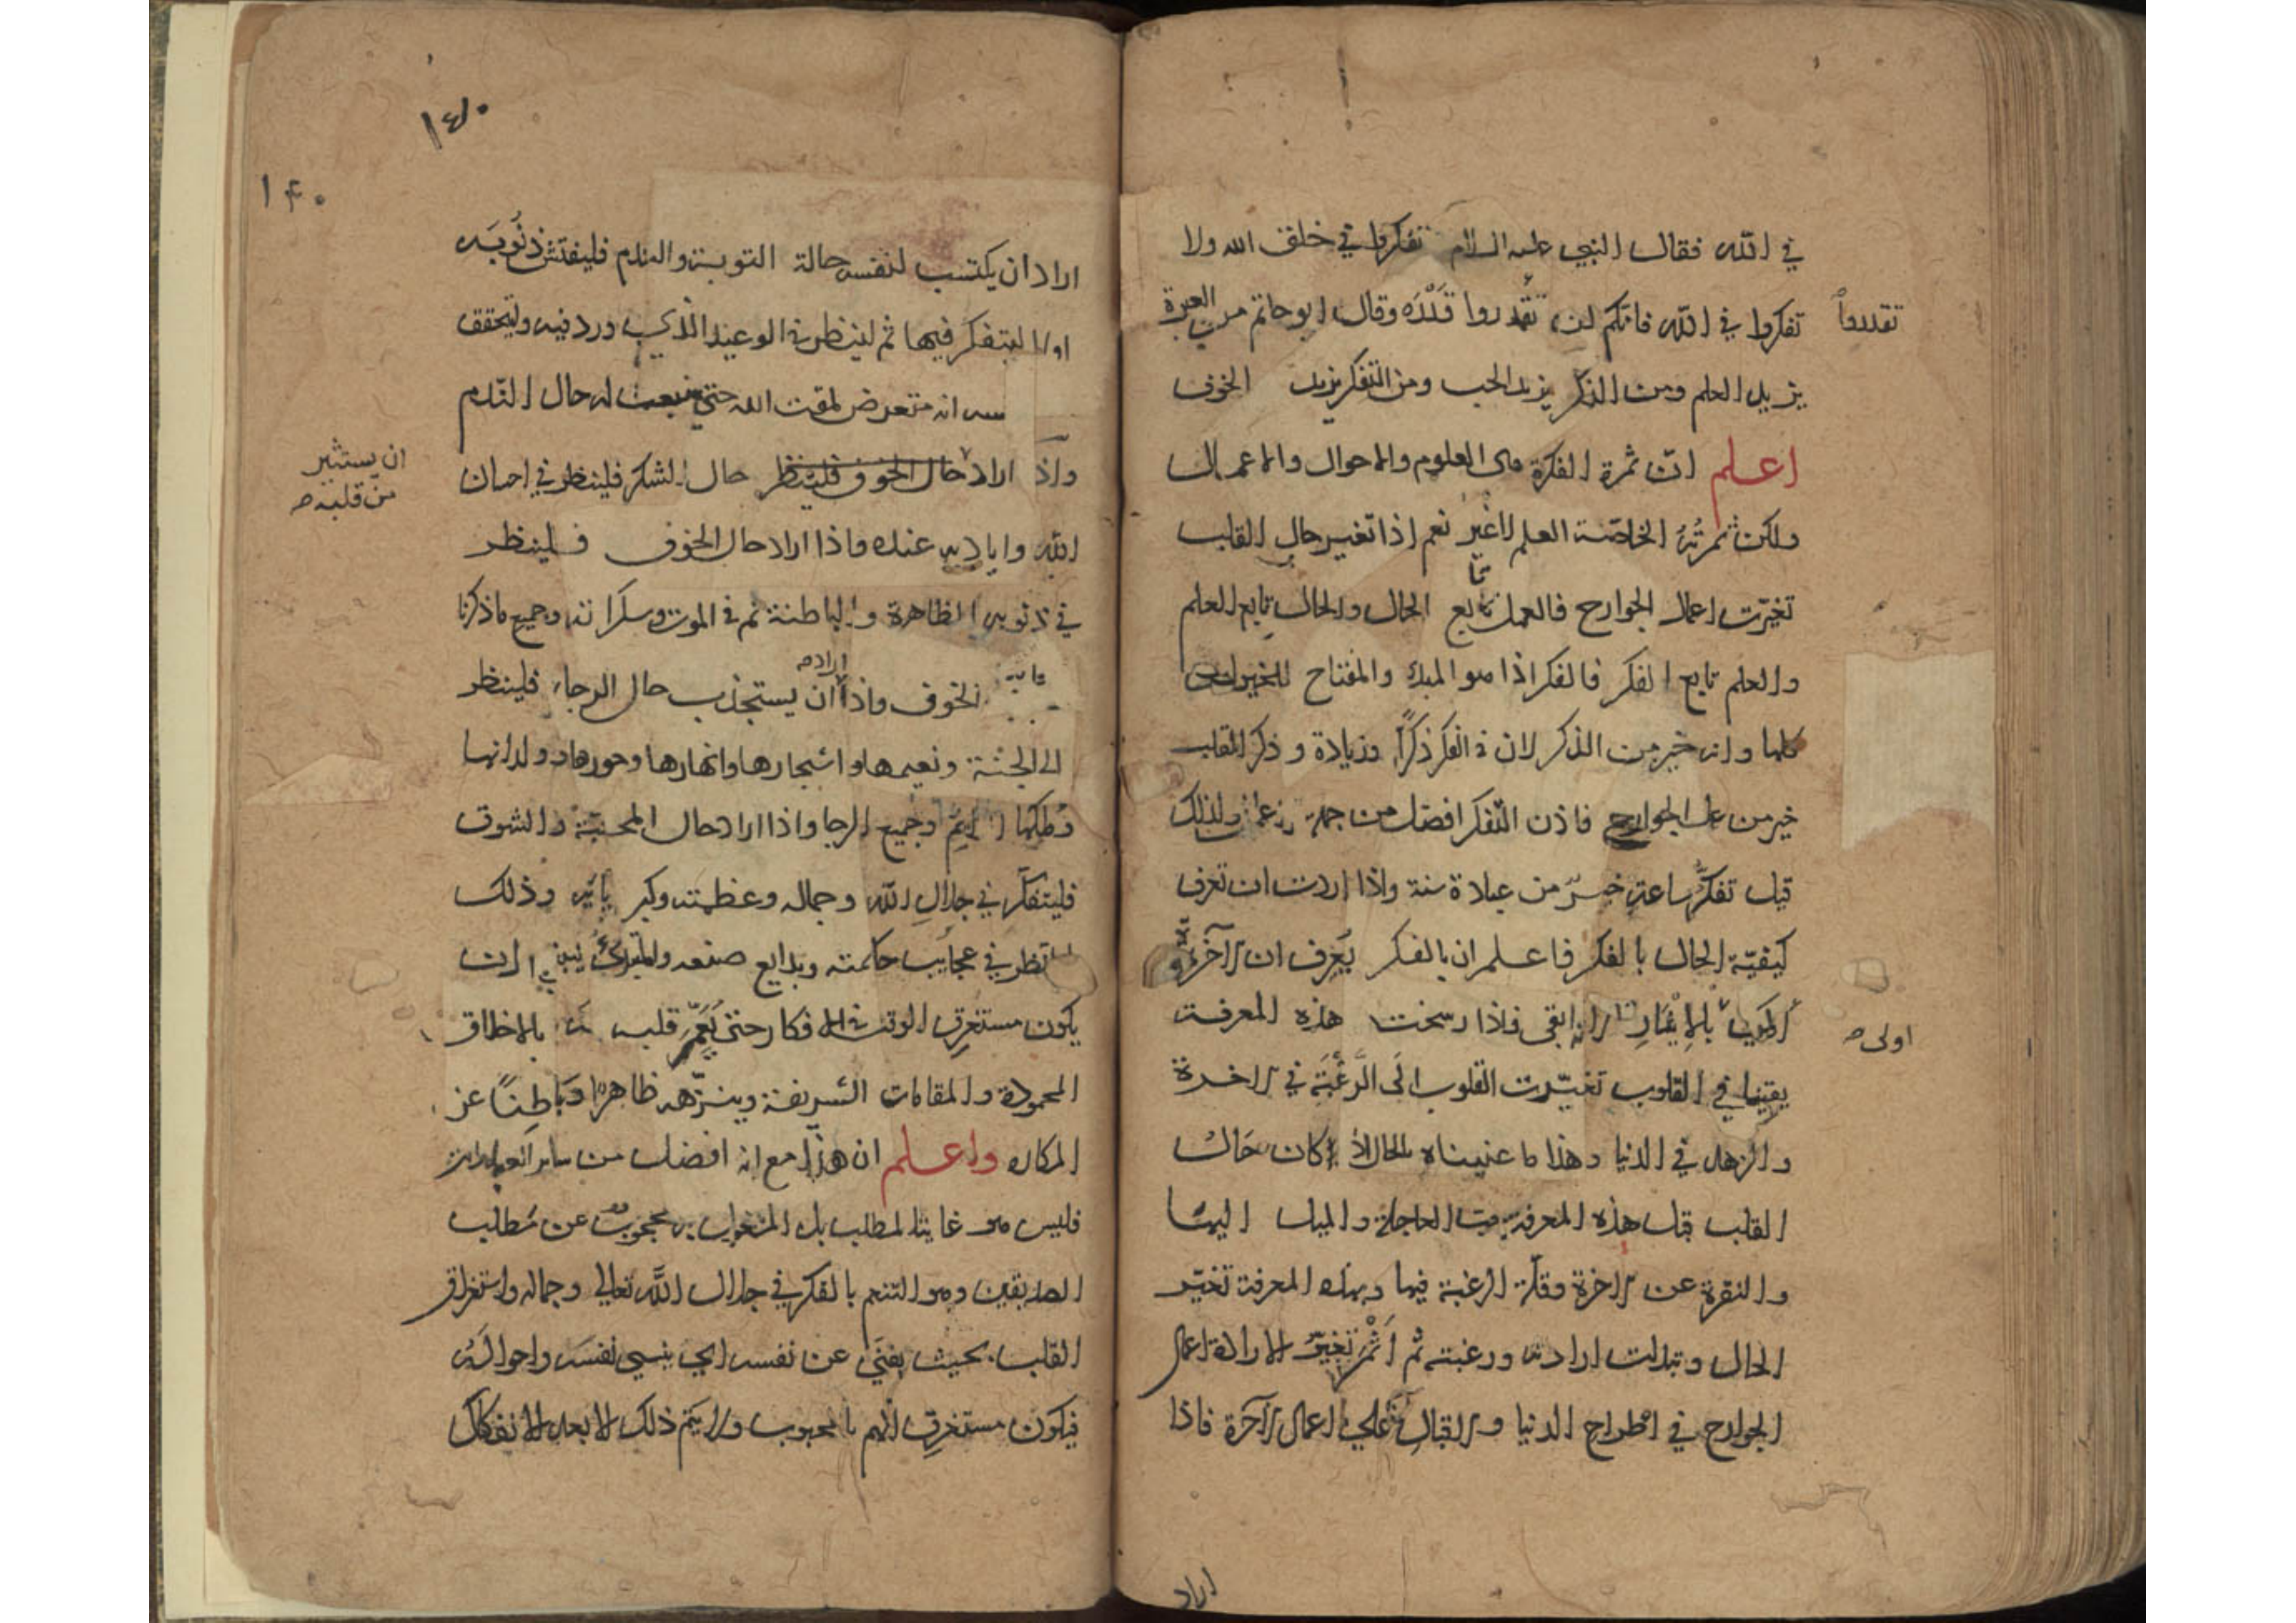 في الله فقال النبي عليه السلام تفكروا في خلق الله ولا
تفكروا في الله فانكم لن تقدروا قدره وقال ابو حاتم من العبرة
تقدروا
يزيد العلم ومن الذكر يزيد الحب ومن التفكر يزيد الخوف
اعلم ان ثمرة الفكرة هى العلوم والاحوال والاعمال
ولكن ثمرته الخاصة العلم لا غير نعم اذا تغير حال القلب
تغيرت اعمال الجوارح فالعمل تابع الحال والحال تابع العلم
والعلم تابع الفكر فالفكر اذا هو المبدء والمفتاح للخيرات
كلها وانه خير من الذكر لان في الفكر ذكرا وزيادة وذكر القلب
خير من عمل الجوارح فاذن التفكر افضل من جملة الاعمال ولذلك
قيل تفكر ساعة خير من عبادة سنة واذا اردت ان تعرف
كيفية الحال بالفكر فاعلم ان بالفكر يعرف ان الآخرة
بالايثار لانه ابقى فاذا رسخت هذه المعرفة
اولى
يقينا في القلوب تغيرت القلوب الى الرغبة في الاخرة
والزهد في الدنيا وهذا ما عنيناه بالحال اذ كان حال
القلب قبل هذه المعرفة حب العاجلة والميل اليها
والنفرة عن الاخرة وقلة الرغبة فيها وبهذه المعرفة تغير
الحال وتبدلت ارادته ورغبته ثم اثمر تغير الارادة اعمال
الجوارح في اطراح الدنيا والاقبال على اعمال الآخرة فاذا
اراد
١٤٠
١۴٠
اراد ان يكتسب لنفسه حالة التوبة والندم فليفتش ذنوبه
اولا ليتفكر فيها ثم لينظر في الوعيد الذي ورد فيه وليحقق
انه متعرض لمقت الله حتى ينبعث له حال الندم
واذا اراد حال الخوف فلينظر حال الشكر فلينظر في احسان
ان يستثير
من قلبه
الله واياديه عنده واذا اراد حال الخوف فلينظر
في ذنوبه الظاهرة والباطنة ثم في الموت وسكراته وجميع ما ذكرنا
الخوف واذا اراد ان يستجذب حال الرجاء فلينظر
الى الجنة ونعيمها واشجارها وانهارها وحورها وولدانها
وملكها الدائم وجميع الرجا واذا اراد حال المحبة والشوق
فليتفكر في جلال الله وجماله وعظمته وكبريائه وذلك
بالنظر في عجايب حكمته وبدايع صنعه والمبتدئ ينبغي ان
يكون مستغرق الوقت في الافكار حتى يعمر قلبه بالاخلاق
المحمودة والمقامات الشريفة وينزهه ظاهرا وباطنا عن
المكاره واعلم ان هذا مع انه افضل من ساير العبادات
فليس هو غاية المطلب بل المشغول به محجوب عن مطلب
الصديقين وهو التنعم بالفكر في جلال الله تعالى وجماله واستغراق
القلب بحيث يفنى عن نفسه اي ينسى نفسه واحواله
فيكون مستغرق الهم بالمحبوب ولا يتم ذلك الا بعد الانفكاك